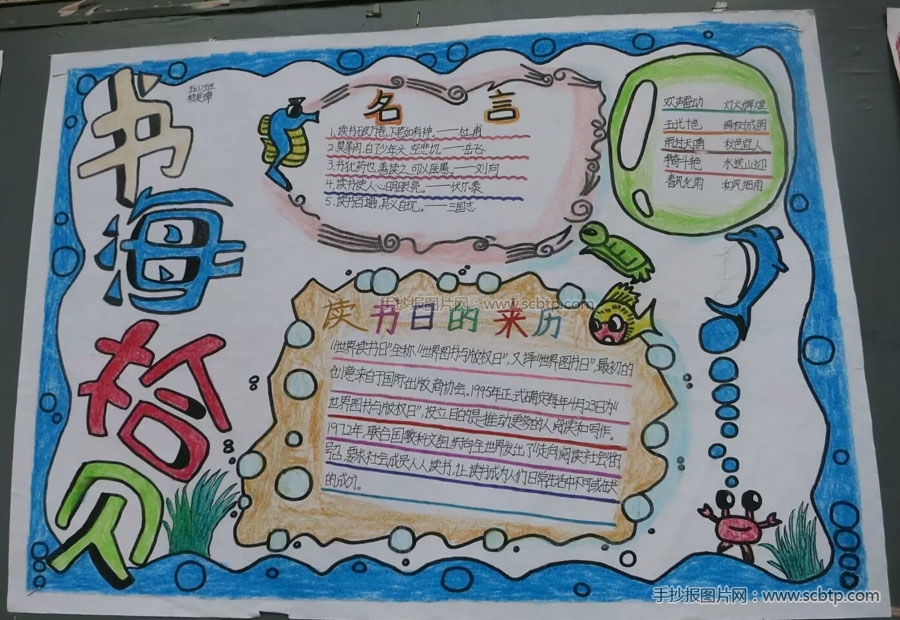 书海拾贝
名言
1.读书破万卷,下笔如有神。——杜甫
2.莫等闲,白了少年头,空悲切。——岳飞
3.书犹药也,善读之,可以医愚。——刘向
4.读书使人心明眼亮。——伏尔泰
5.读书百遍,其义自见。——三国志
欢声雷动 灯火辉煌
五光十色
雨过天晴 秋色宜人
争奇斗艳 水送山迎
春风化雨 和风细雨
读书日的来历
"世界读书日"全称"世界图书与版权日",又译"世界图书日",最初的
创意来自于国际出版商协会。1995年正式确定每年4月23日为"
世界图书与版权日",设立目的是推动更多的人阅读和写作。
1972年,联合国教科文组织向全世界发出了"走向阅读社会"的
号召,要求社会成员人人读书,让读书成为人们日常生活中不可或缺
的成分。
手抄报图片网:www.scbtp.com
手抄报图片网:www.scbtp.com